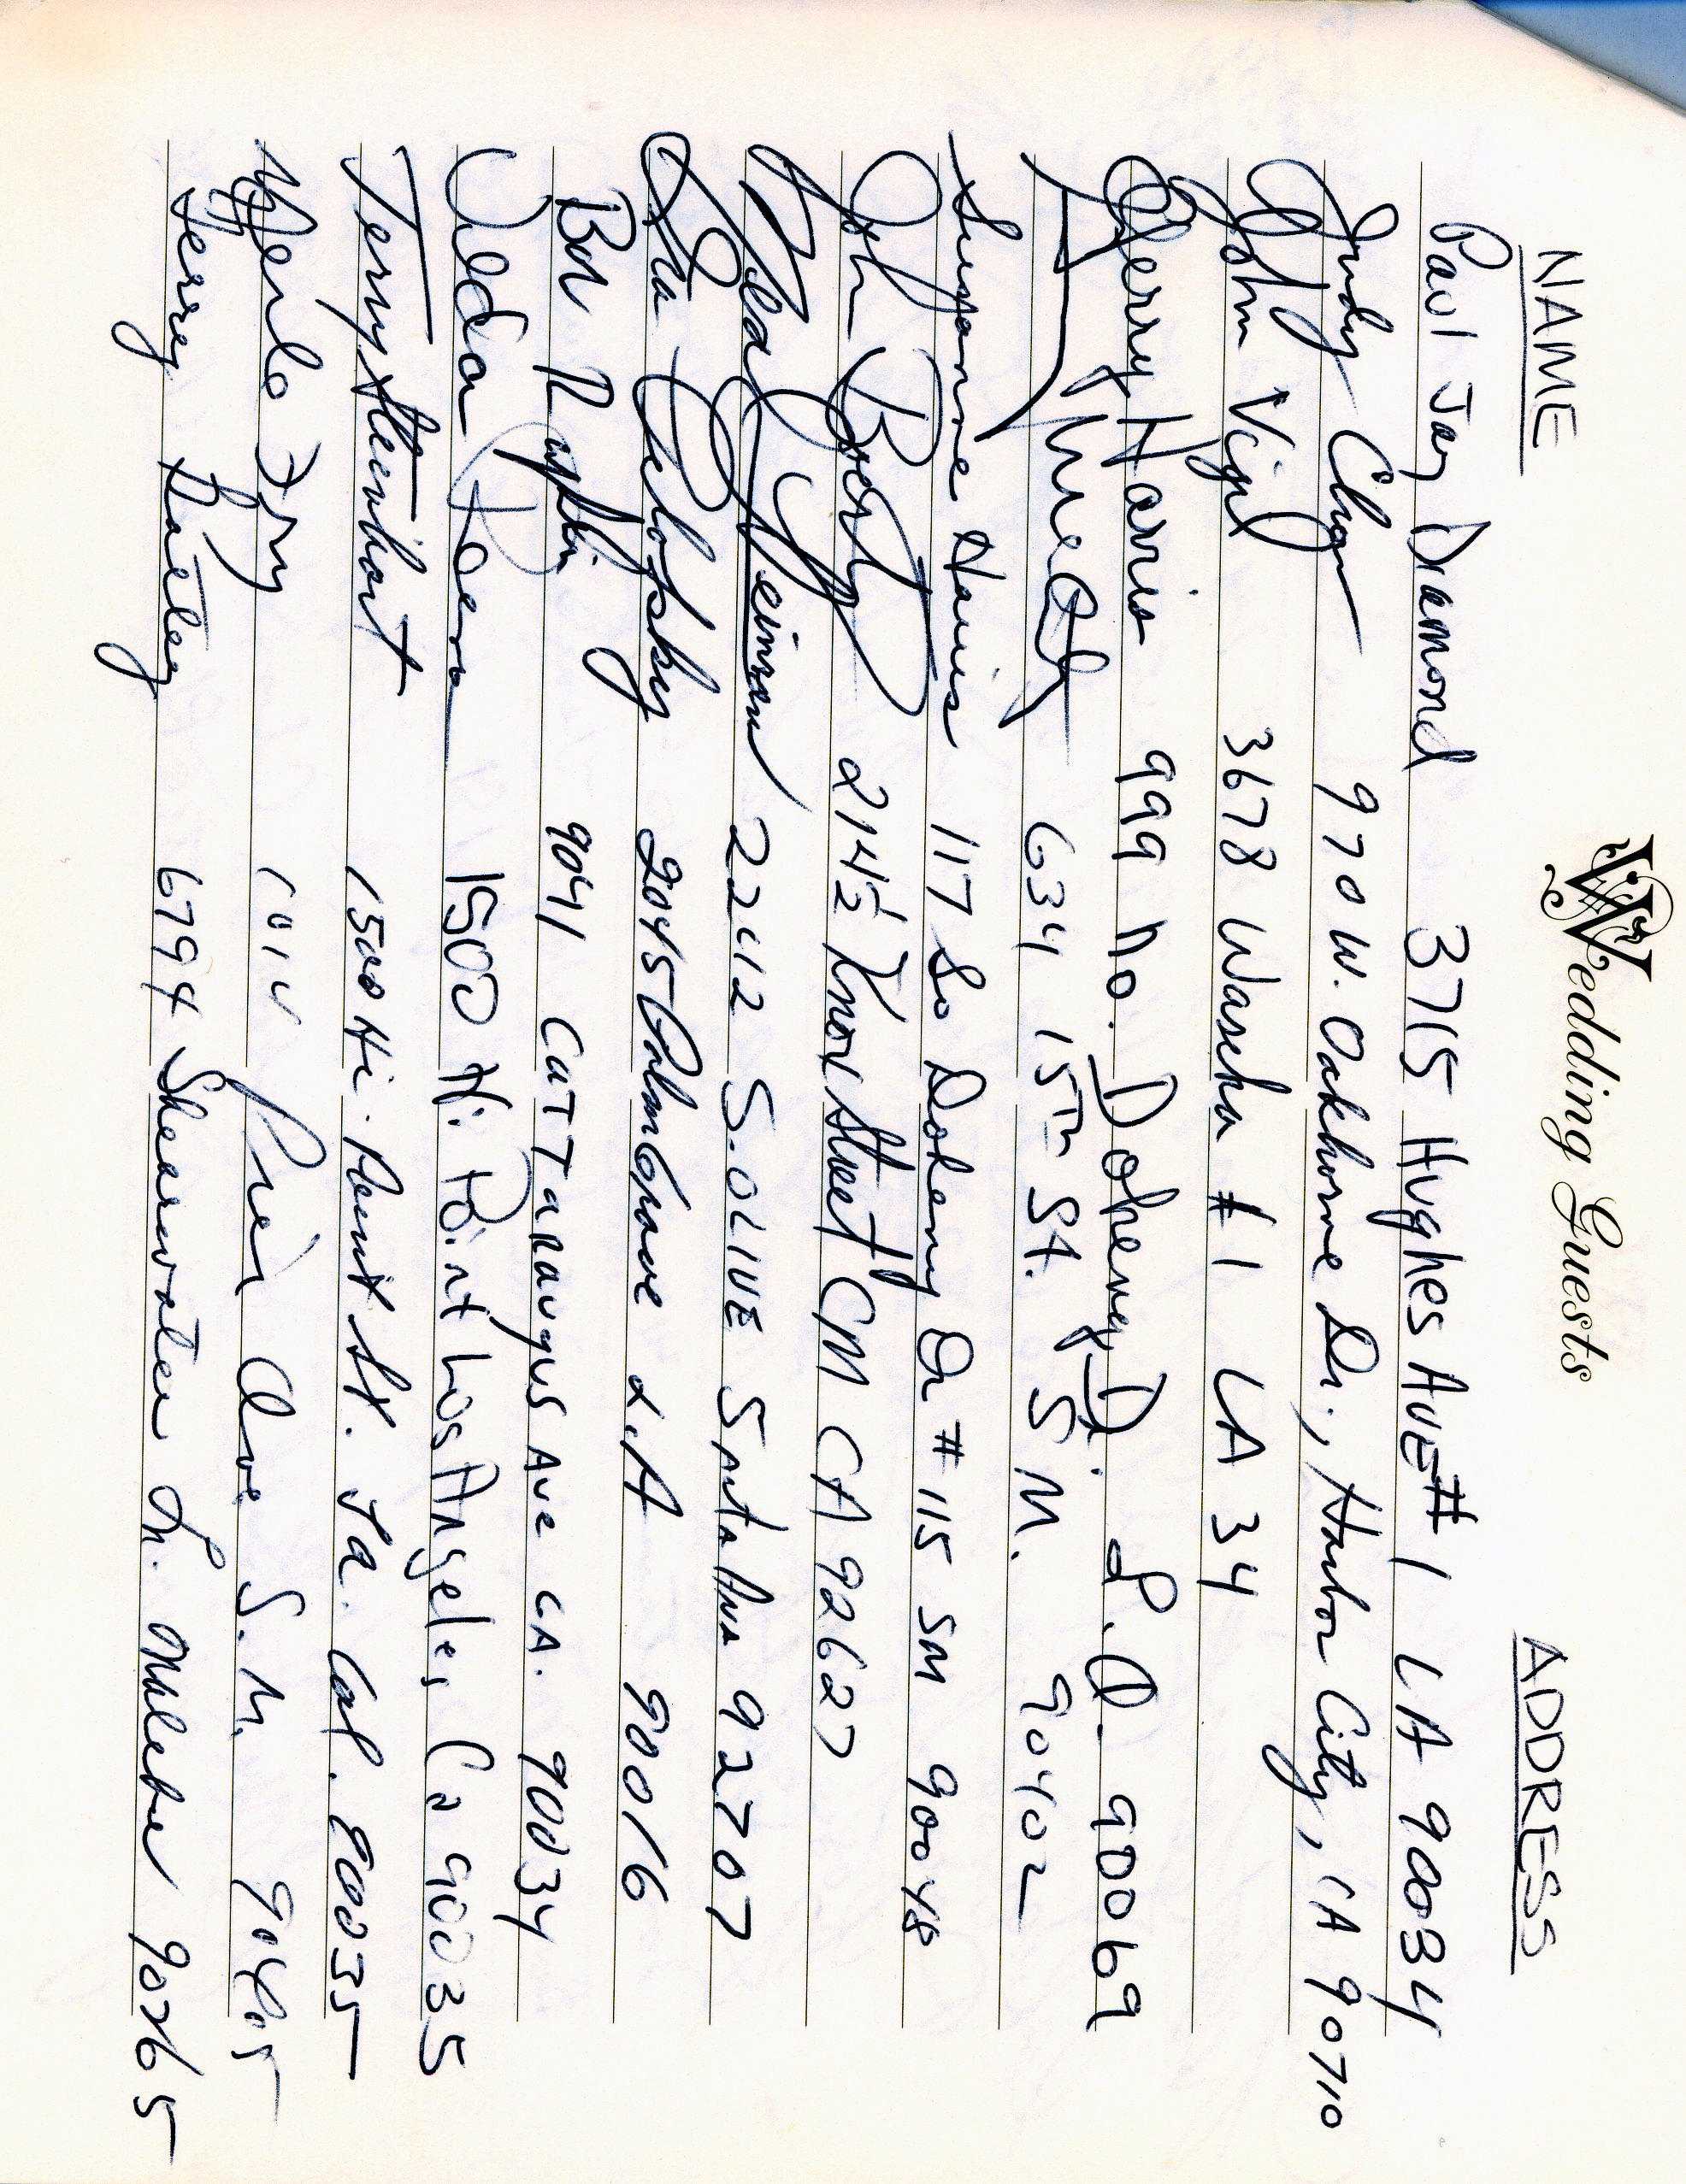 Wedding Guests
NAME ADDRESS
Paul Jay Diamond 3715 Hughes AVE #1 LA 90034
Judy Chan 970 W. Oakhorne Dr., Harbor City, CA 90710
John Vigil 3678 Waseka #1 LA 34
Gerry Harris 999 no. Doheny Dr. L.A. 90069
634 15th St. S M. 90402
Suzanne Harris 117 So Doheny Dr # 115 SM 90048
John 214½ Knox Street CM CA 92627
2212 S. OLIVE Santa Ana 92707
2045 Palm Grove L.A 90016
Bob 9041 CATTARAUGUS Ave CA. 90034
Velda 1500 Hi Point Los Angeles, Ca 90035
Terry Steinhart 1500 Hi-Point St. La. Cal. 90035
Pier Ave S.M. 90405
Jerrey Bailey 6794 Shearwater Ln. Malibu 90265